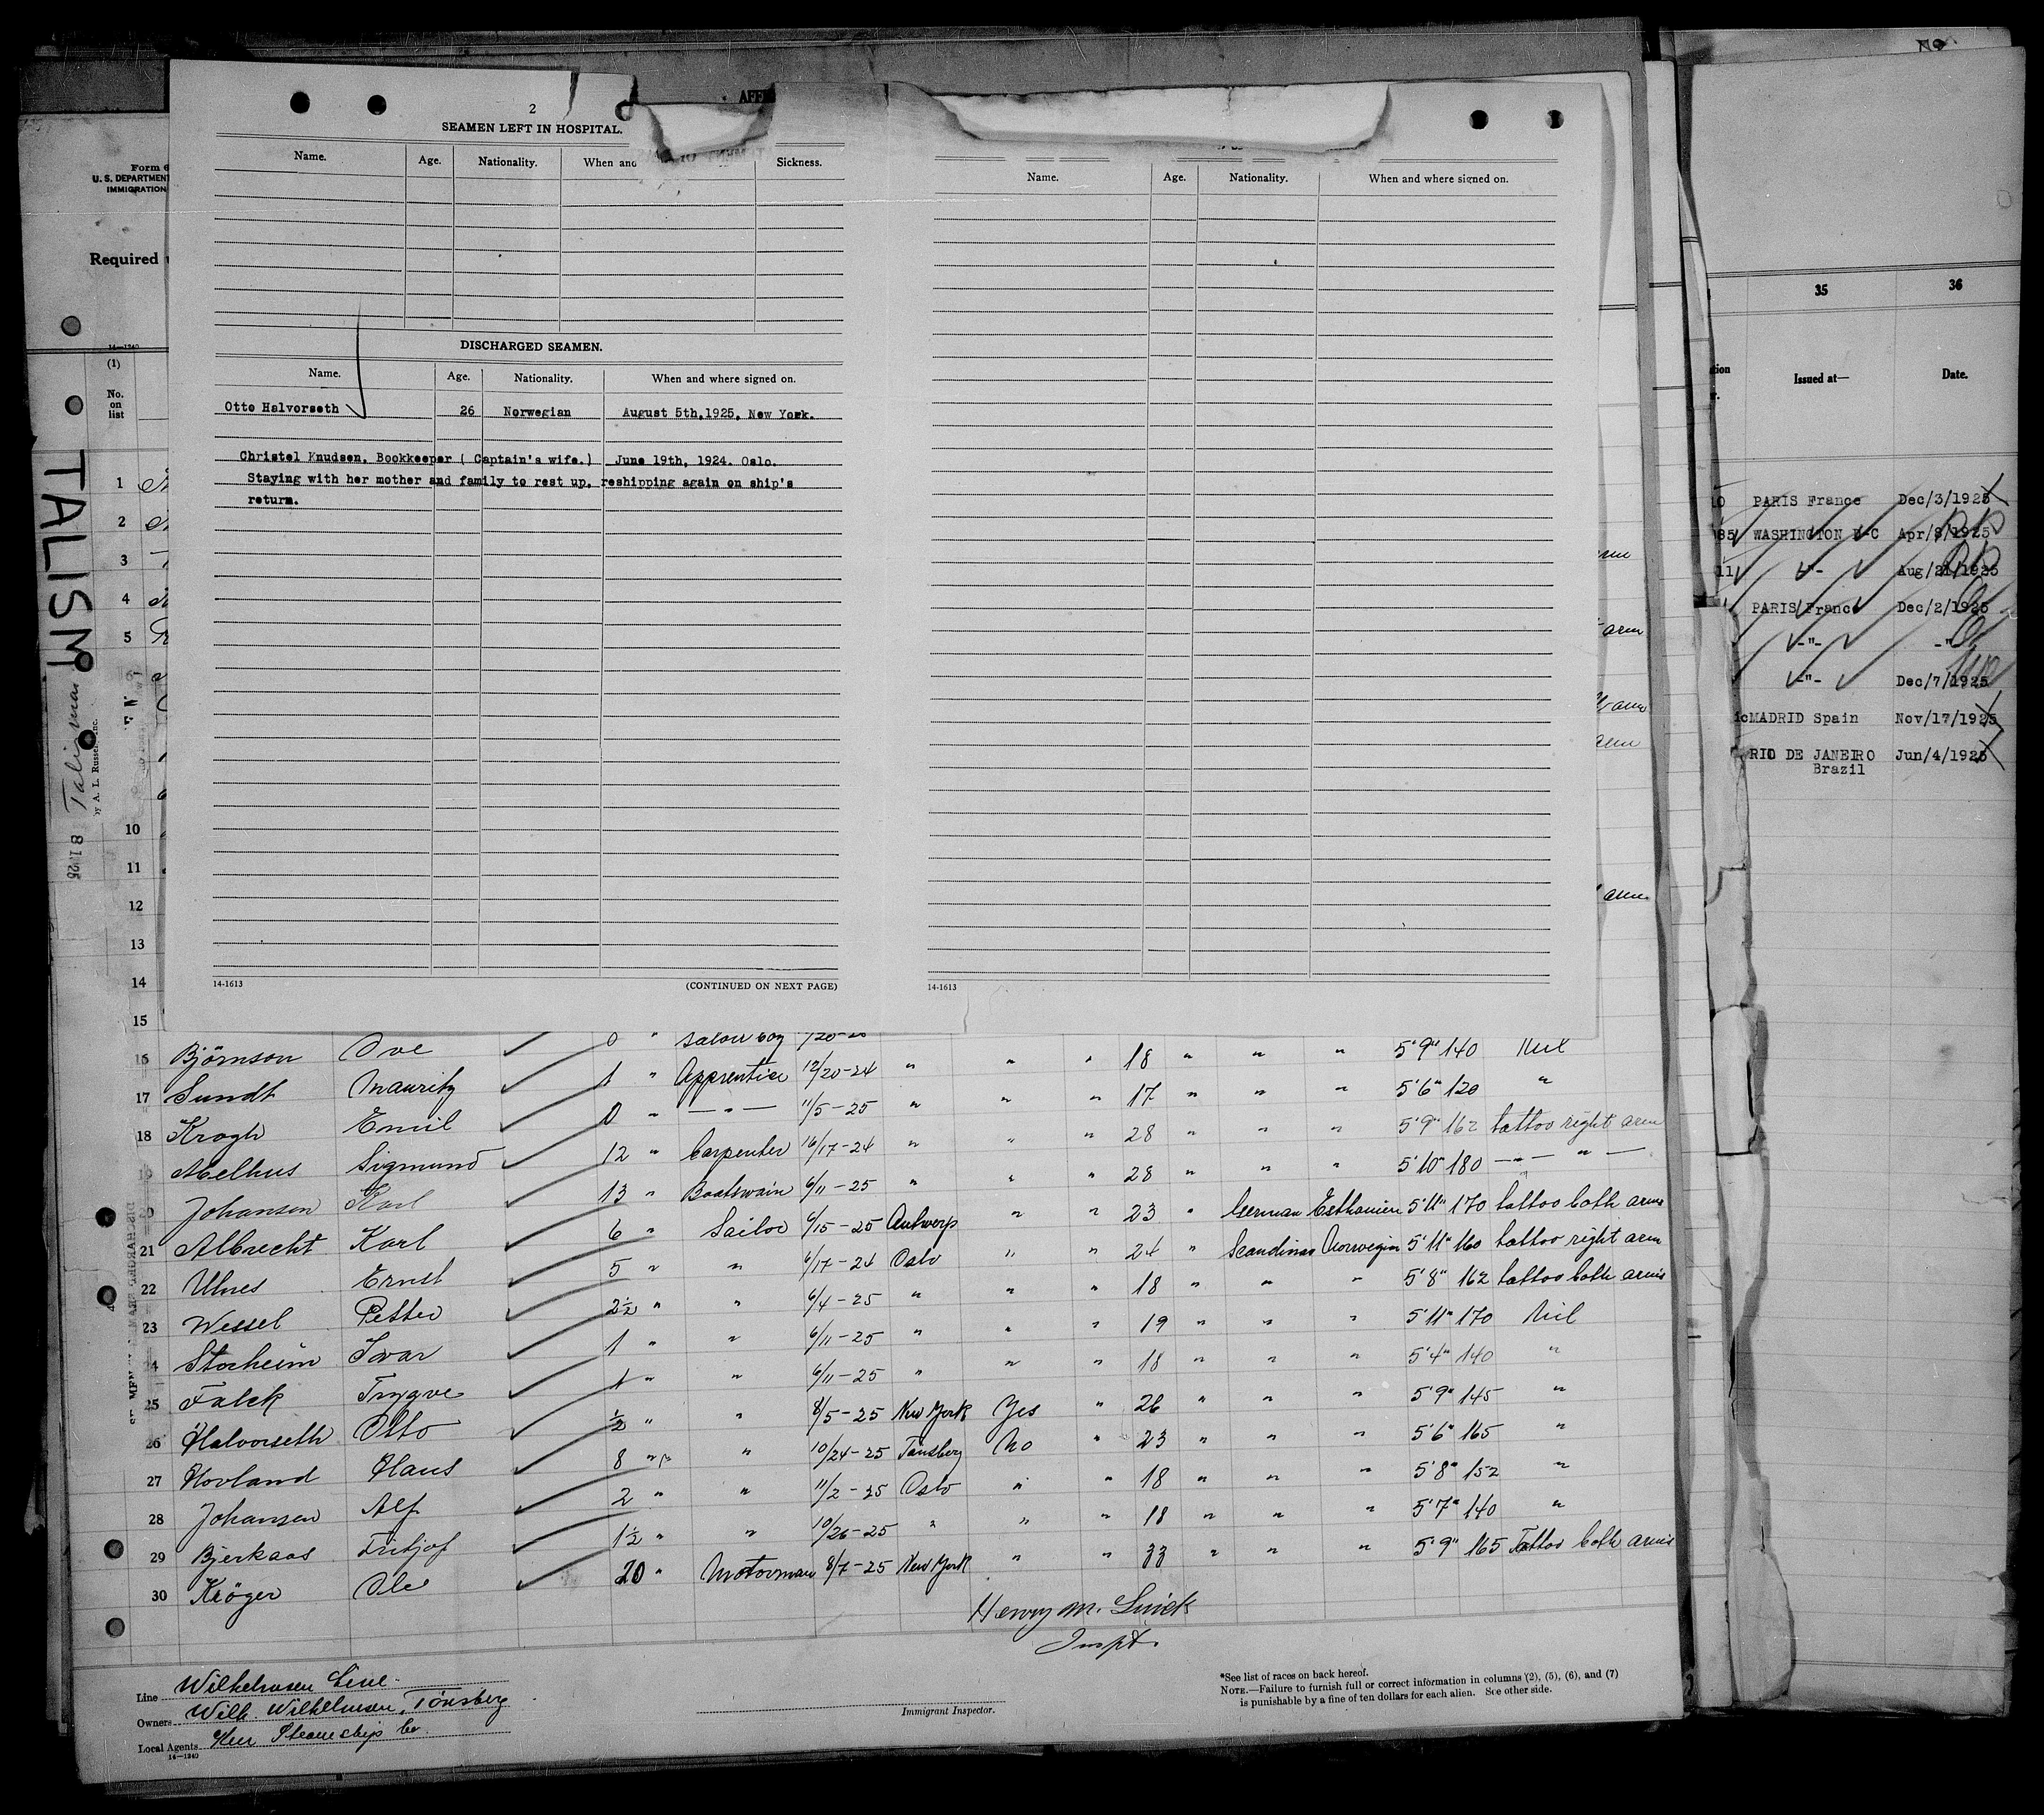 2
SEAMEN LEFT IN HOSPITAL.
Name. Age. Nationality. When and Sickness.
DISCHARGED SEAMEN.
Name. Age. Nationality. When and where signed on.
Otto Halvorseth 26 Norwegian August 5th,1925, New York.
Christel Knudsen, Bookkeeper ( Captain's wife.) June 19th, 1924. Oslo.
Staying with her mother and family to rest up, reshipping again on ship's
return.
14-1613 (CONTINUED ON NEXT PAGE)
Name. Age. Nationality. When and where signed on.
14-1613
Form 6
U. S. DEPARTMENT
IMMIGRATION
Required
14—1240
(1)
No.
on
list
TALISM
Talisman
by A. L. Russell, Inc.
1
2
3
4
5
10
11
12
13
14
15
arm
arm
arm
35 36
Issued at— Date.
10 PARIS France Dec/3/1925
85 WASHINGTON D-C Apr/8/1925
11 -"- Aug/21/1925
PARIS France Dec/2/1925
-"- -"-
-"- Dec/7/1925
MADRID Spain Nov/17/1925
RIO DE JANEIRO Jun/4/1925
Brazil
16 Björnson Ove 0 " Salon boy /20-25 " " 18 " " " 5'9" 140 Nil
17 Sundt Mauritz 1 " Apprentice 12/20-24 " " " 17 " " " 5'6" 120 "
18 Krogh Emil 0 " —"— 11/5-25 " " " 28 " " " 5'9" 162 tattoo right arm
19 Melhus Sigmund 12 " Carpenter /17-24 " " " 28 " " " 5'10" 180 —"— " —
20 Johansen Karl 13 " Boatswain 6/11-25 " " " 23 " German Esthonien 5'11" 170 tattoo both arms
21 Albrecht Karl 6 " Sailor 6/15-25 Antwerp " " 24 " Scandinav Norwegin 5'11" 160 tattoo right arm
22 Ulnes Ernst 5 " " 6/17-24 Oslo " " 18 " " " 5'8" 162 tattoo both arms
23 Wessel Petter 2½ " " 6/4-25 " " " 19 " " " 5'11" 170 Nil
24 Storheim Ivar 1 " " 6/11-25 " " " 18 " " " 5'4" 140 "
25 Falck Trygve 1 " " 6/11-25 " " " 26 " " " 5'9" 145 "
26 Halvorseth Otto ½ " " 8/5-25 New York Yes " 23 " " " 5'6" 165 "
27 Hovland Hans 8 " " 10/24-25 Tønsberg No " 18 " " " 5'8" 152 "
28 Johansen Alf 2 " " 11/2-25 Oslo " " 18 " " " 5'7" 140 "
29 Bjerkaas Fritjof 1½ " " 10/26-25 " " " 33 " " " 5'9" 165 Tattoo both arms
30 Kröger Ole 20 " Motorman 8/7-25 New York
Henry M.
Inspt.
Immigrant Inspector.
Line Wilhelmsen Line.
Owners Wilh. Wilhelmsen, Tönsberg
Local Agents Kerr Steamship Co.
14—1240
*See list of races on back hereof.
NOTE.—Failure to furnish full or correct information in columns (2), (5), (6), and (7)
is punishable by a fine of ten dollars for each alien. See other side.